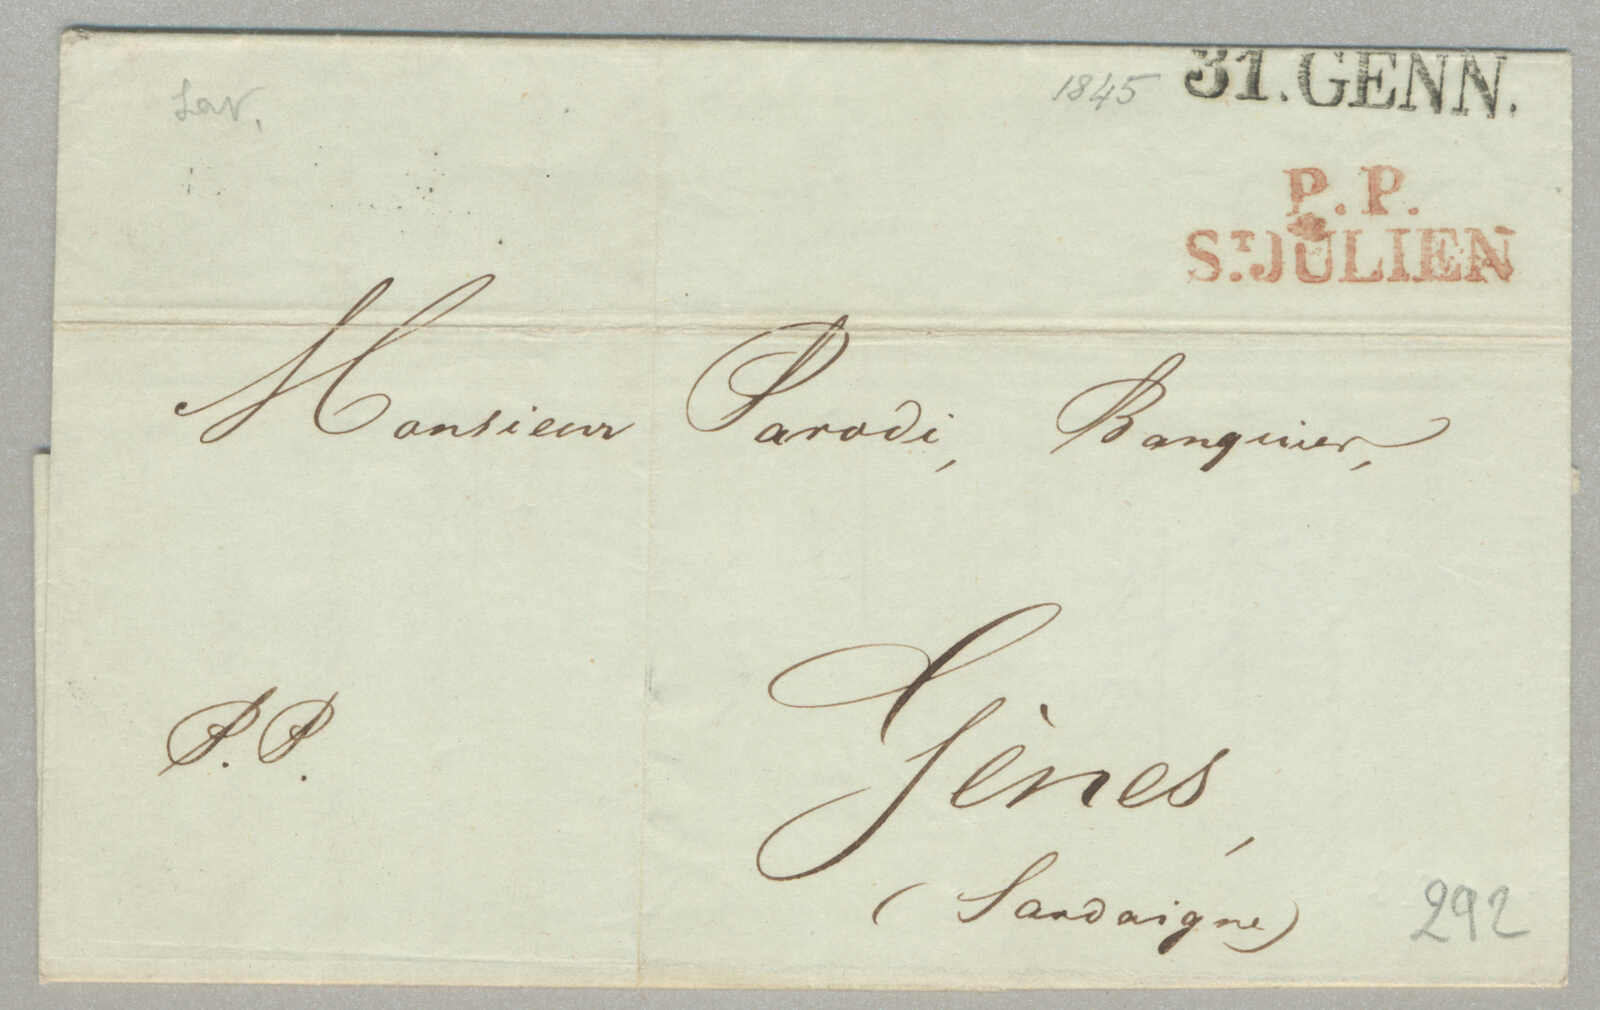 Sav.
1845 31.GENN.
P.P.
S.T JULIEN
Monsieur Parodi, Banquier,
P.P.
Gènes,
(Sardaigne)
292